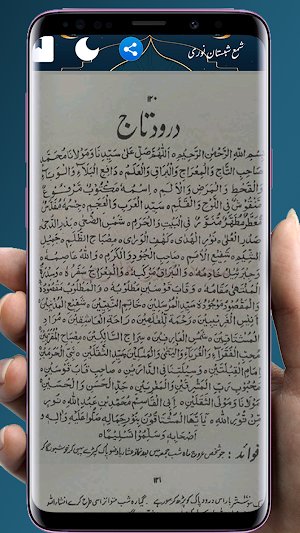 شمع شبستان نوری
۱۲۰
درود تاج
بِسْمِ اللّٰهِ الرَّحْمٰنِ الرَّحِيْمِ ۝ اَللّٰهُمَّ صَلِّ عَلٰى سَيِّدِنَا وَمَوْلَانَا مُحَمَّدٍ
صَاحِبِ التَّاجِ وَالْمِعْرَاجِ وَالْبُرَاقِ وَالْعَلَمِ ۝ دَافِعِ الْبَلَاءِ وَالْوَبَاءِ
وَالْقَحْطِ وَالْمَرَضِ وَالْاَلَمِ ۝ اِسْمُهٗ مَكْتُوْبٌ مَّرْفُوْعٌ
مَّشْفُوْعٌ مَّنْقُوْشٌ فِي اللَّوْحِ وَالْقَلَمِ ۝ سَيِّدِ الْعَرَبِ وَالْعَجَمِ ۝ جِسْمُهٗ مُقَدَّسٌ
مُّعَطَّرٌ مُّطَهَّرٌ مُّنَوَّرٌ فِي الْبَيْتِ وَالْحَرَمِ ۝ شَمْسِ الضُّحٰى ۝ بَدْرِ الدُّجٰى
صَدْرِ الْعُلٰى ۝ نُوْرِ الْهُدٰى ۝ كَهْفِ الْوَرٰى ۝ مِصْبَاحِ الظُّلَمِ ۝ جَمِيْلِ
الشِّيَمِ ۝ شَفِيْعِ الْاُمَمِ ۝ صَاحِبِ الْجُوْدِ وَالْكَرَمِ ۝ وَاللّٰهُ عَاصِمُهٗ ۝
وَجِبْرِيْلُ خَادِمُهٗ ۝ وَالْبُرَاقُ مَرْكَبُهٗ ۝ وَالْمِعْرَاجُ سَفَرُهٗ ۝ وَسِدْرَةُ
الْمُنْتَهٰى مَقَامُهٗ ۝ وَقَابَ قَوْسَيْنِ مَطْلُوْبُهٗ ۝ وَالْمَطْلُوْبُ مَقْصُوْدُهٗ
وَالْمَقْصُوْدُ مَوْجُوْدُهٗ ۝ سَيِّدِ الْمُرْسَلِيْنَ ۝ خَاتَمِ النَّبِيِّيْنَ ۝ شَفِيْعِ الْمُذْنِبِيْنَ ۝
اَنِيْسِ الْغَرِيْبِيْنَ ۝ رَحْمَةٍ لِّلْعٰلَمِيْنَ ۝ رَاحَةِ الْعَاشِقِيْنَ ۝ مُرَادِ
الْمُشْتَاقِيْنَ ۝ شَمْسِ الْعَارِفِيْنَ ۝ سِرَاجِ السَّالِكِيْنَ ۝ مِصْبَاحِ الْمُقَرَّبِيْنَ
مُحِبِّ الْفُقَرَاءِ وَالْغُرَبَاءِ وَالْمَسَاكِيْنِ سَيِّدِ الثَّقَلَيْنِ ۝ نَبِيِّ الْحَرَمَيْنِ
اِمَامِ الْقِبْلَتَيْنِ ۝ وَسِيْلَتِنَا فِي الدَّارَيْنِ ۝ صَاحِبِ قَابَ قَوْسَيْنِ ۝
مَحْبُوْبِ رَبِّ الْمَشْرِقَيْنِ وَالْمَغْرِبَيْنِ ۝ جَدِّ الْحَسَنِ وَالْحُسَيْنِ
مَوْلَانَا وَمَوْلَى الثَّقَلَيْنِ ۝ اَبِي الْقَاسِمِ مُحَمَّدِ بْنِ عَبْدِ اللّٰهِ ۝ نُوْرٍ
مِّنْ نُّوْرِ اللّٰهِ ۝ يٰاَيُّهَا الْمُشْتَاقُوْنَ بِنُوْرِ جَمَالِهٖ صَلُّوْا عَلَيْهِ وَاٰلِهٖ
اَصْحَابِهٖ وَسَلِّمُوْا تَسْلِيْمًا ۝
فوائد : جو شخص عروج ماہ شب جمعہ میں بعد نماز عشاء باوضو پاک کپڑے پہن کر خوشبو لگا کر
۱۲۱
ایک سو ستر بار اس درود پاک کو پڑھ کر سو رہے گیارہ شب متواتر اسی طرح کرے انشاء اللہ